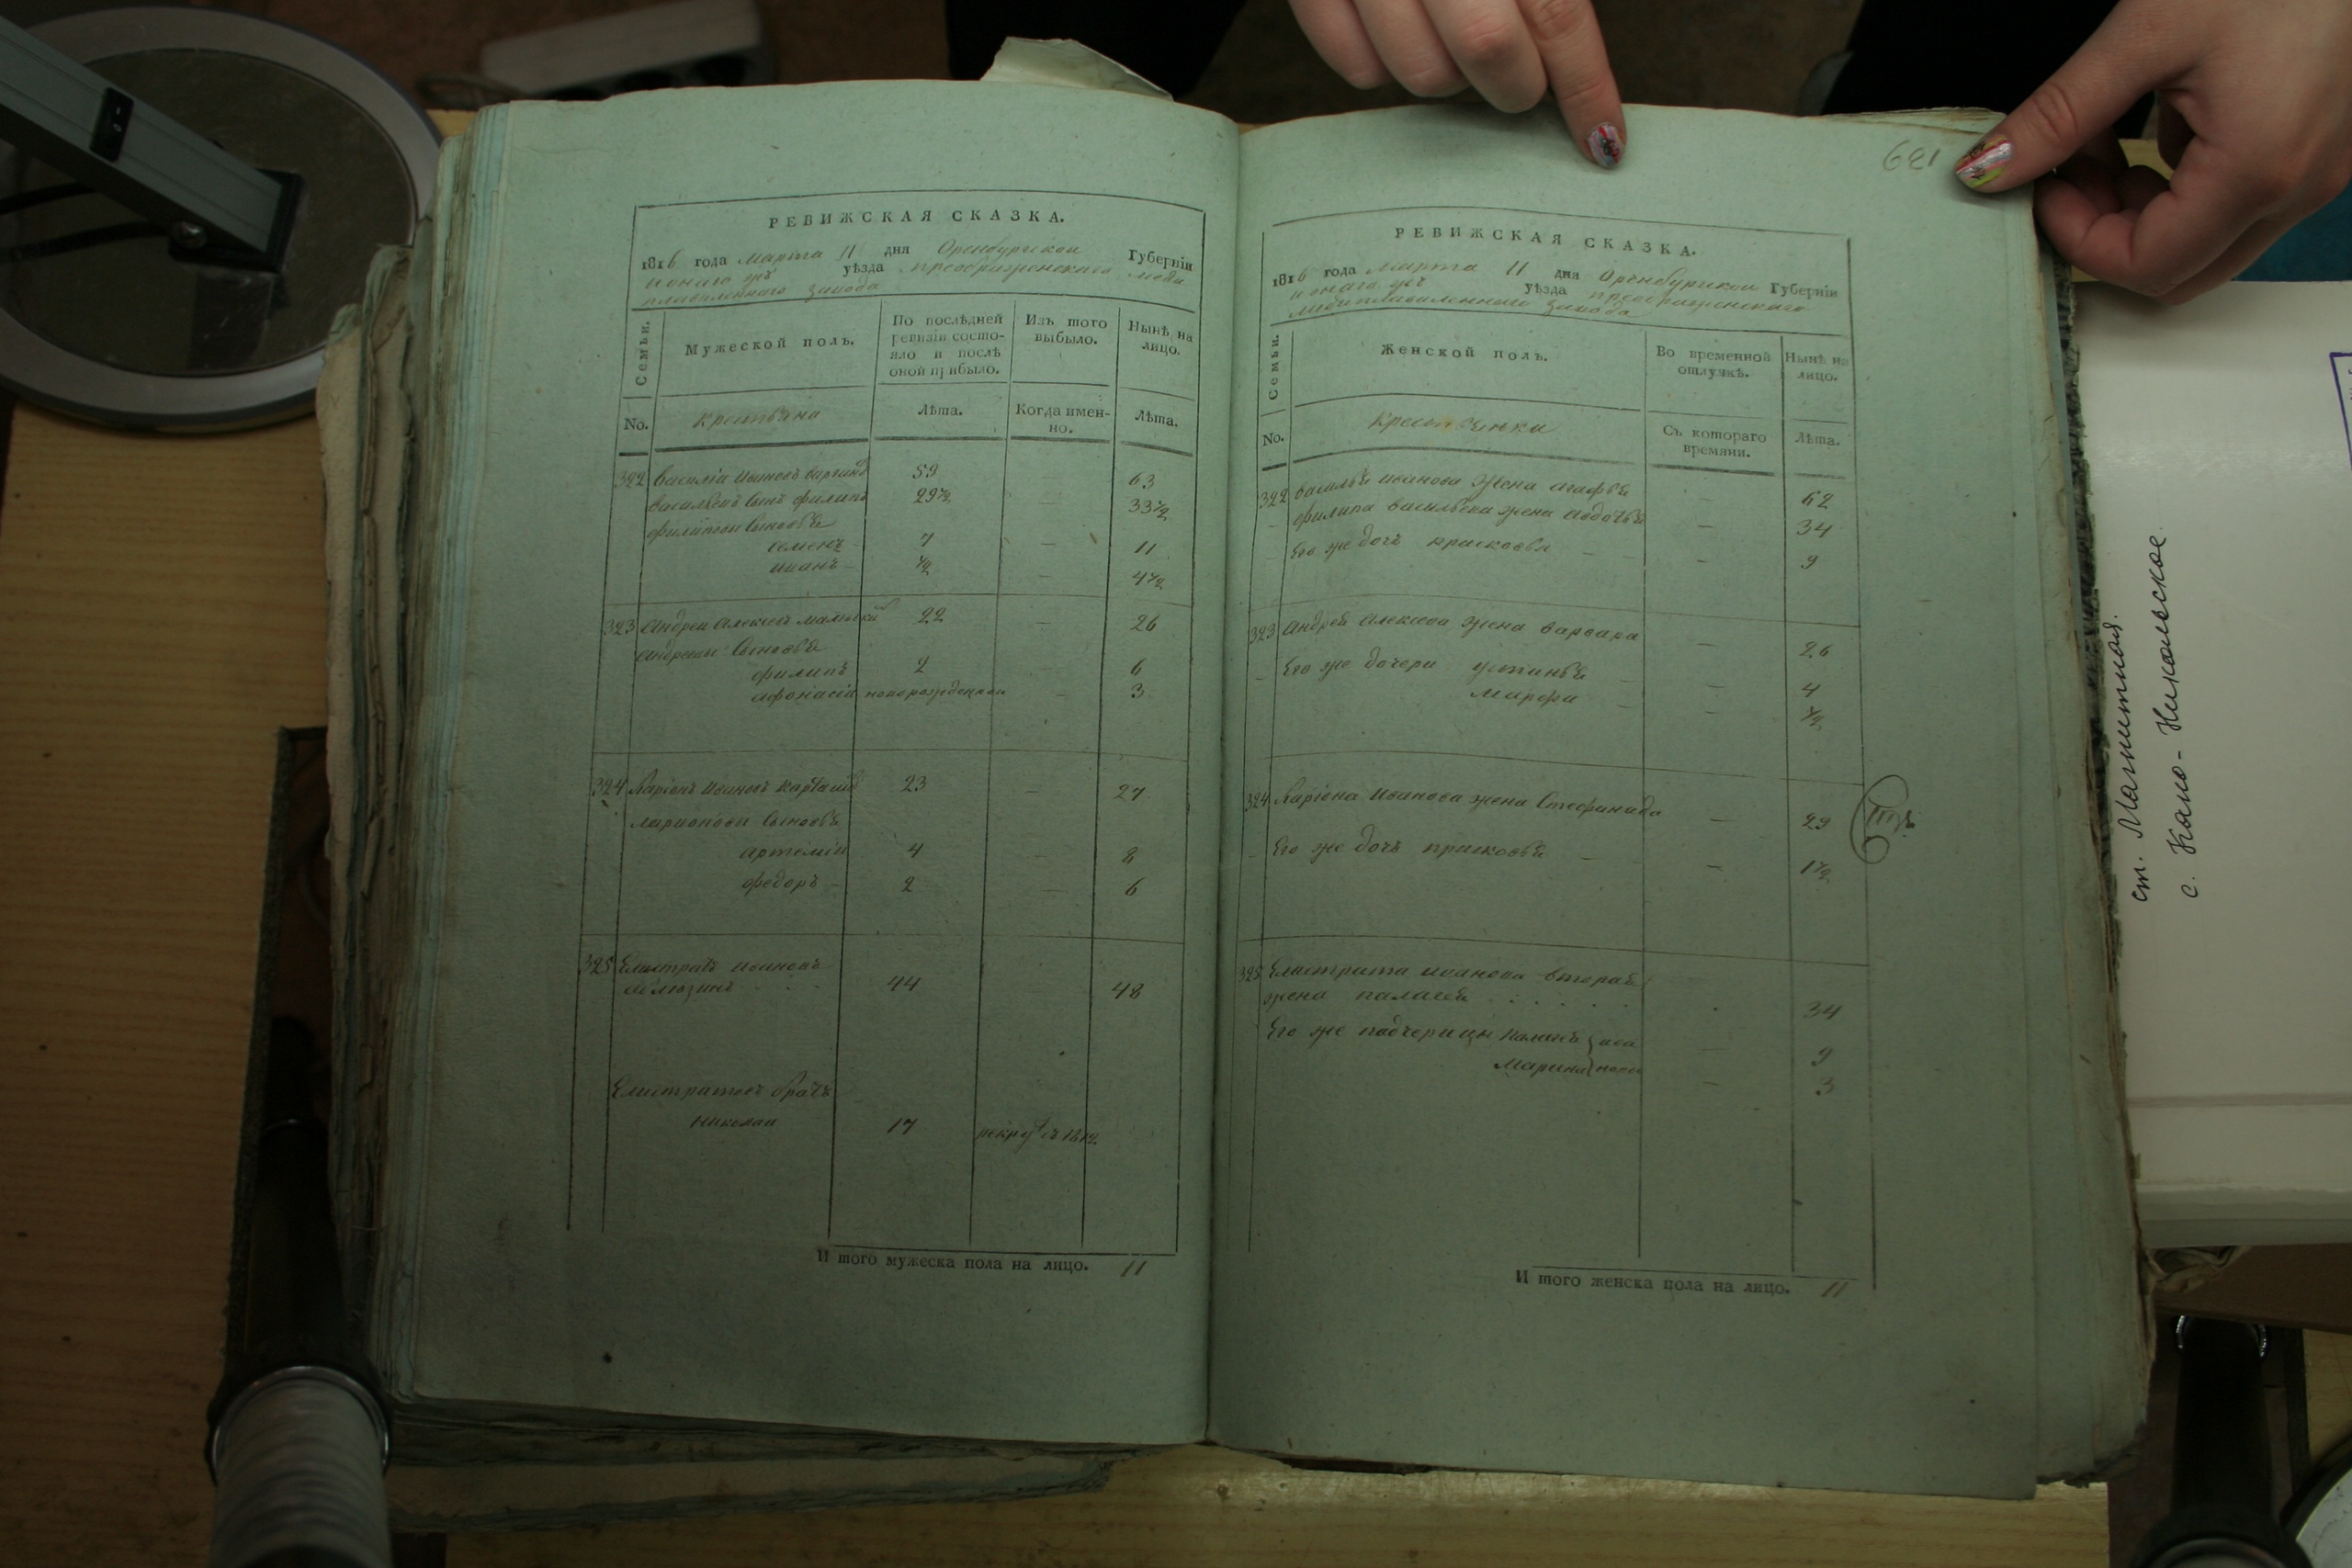 РЕВИЖСКАЯ СКАЗКА.
1816 года марта 11 дня Оренбургской Губерніи
и онаго жъ уѣзда преображенскаго меди
плавиленнаго завода
Семьи.
Мужеской полъ.
По послѣдней ревизіи состо-
яло и послѣ
оной прибыло.
Изъ того
выбыло.
Нынѣ на
лицо.
No.
крестьяна
Лѣта.
Когда имен-
но.
Лѣта.
322 василіи Ивановъ 59 — 63
васильевъ Сынъ филипъ 29½ — 33½
филиповы Сыновья
семенъ 7 — 11
иванъ ½ — 4½
323 Андреи Алексеевъ 22 — 26
андреевы Сыновья
филипъ 2 — 6
афонасіи новорожденнои — 3
324 Ларіонъ Ивановъ 23 — 27
ларионовы Сыновья
артеміи 4 — 8
федоръ 2 — 6
325 Елистратъ Ивановъ
44 48
Елистратовъ братъ
николаи 17 рекрут въ 1812
И того мужеска пола на лицо. 11
621
РЕВИЖСКАЯ СКАЗКА.
1816 года марта 11 дня Оренбургской Губерніи
и онаго жъ уѣзда преображенскаго
медиплавиленнаго завода
Семьи.
Женской полъ.
Во временной
отлучкѣ.
Нынѣ на
лицо.
No.
крестьянки
Съ котораго
времяни.
Лѣта.
322 василья иванова жена агафья — 62
филипа васильева жена авдотья — 34
Его же дочь прасковья — 9
323 Андрея Алексеева жена варвара — 26
Его же дочери устинья — 4
Марфа — ½
324 Ларіона Иванова жена Стефанида — 29
Его же дочь прасковья — 1½
325 Елистрата Иванова вторая
жена палагея 34
Его же падчерицы — 9
Марина — 3
И того женска пола на лицо. 11
с. Кано-Никольское